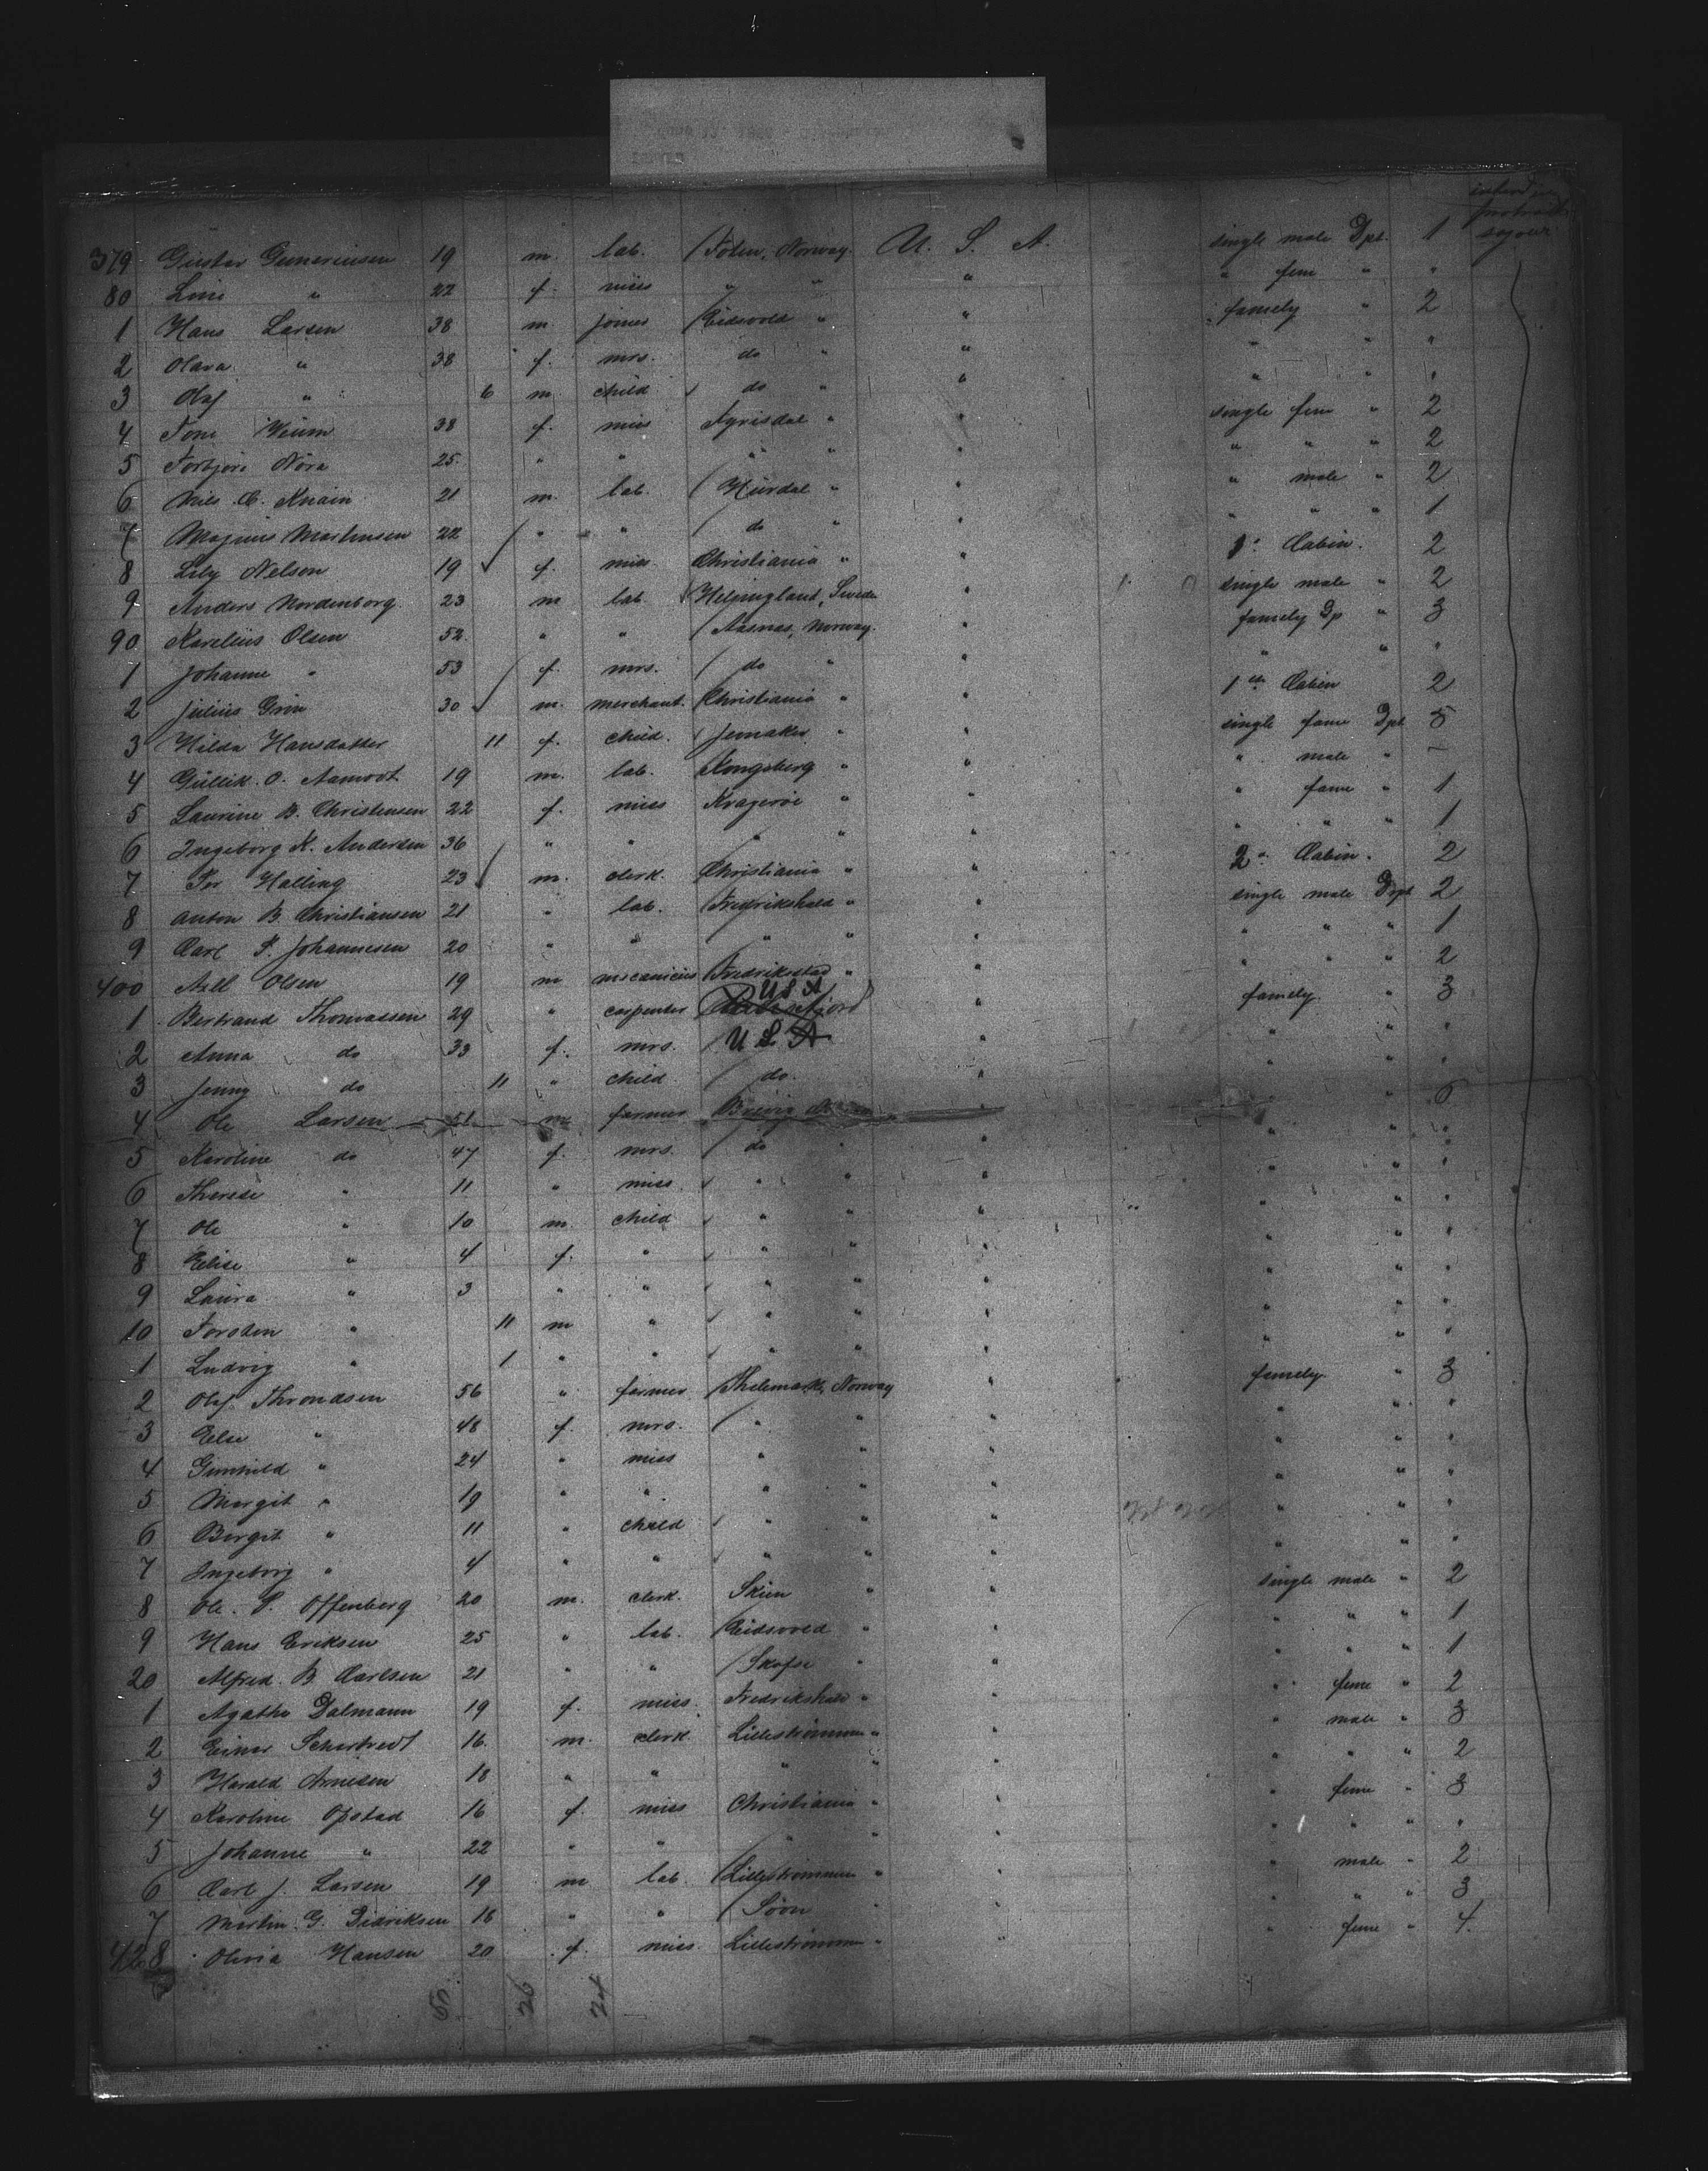 intend in
protract
sejour
379 Gustav Gunereusen 19 m. lab. Toten, Norway. U. S. A. single male Dpt. 1
80 Line " 22 f. miss " " " " fem " "
1 Hans Larsen 38 m joiner Eidsvold " " famely " 2
2 Olava " 38 f. mrs. do " " " " "
3 Olaf " 6 m. child do " " " " "
4 Tone Veum 38 f. miss Fyrisdal " " single fem " 2
5 Torbjør Nora 25. " " " " " " " " 2
6 Nils C. Knain 21 m. lab. Hurdal " " " male " 2
7 Magnus Martinsen 22 " " do " " " " " 1
8 Lily Nelson 19 f. miss Christiania " " 1" Cabin. 2
9 Anders Nordenborg 23 m lab. Helsingland, Sweden " single male " 2
90 Karelius Olsen 52. " " Aasnas, Norway. " famely Dp " 3
1 Johanne " 53 f. mrs. do " " " " "
2 Julius Grin 30 m. merchant. Christiania " " 1" Cabin 2
3 Hilda Hansdatter 11 f. child. Jemaker " " single feme Dpt 5
4 Gullik O. Aamodt 19 m. lab. Kongsberg " " " male " –
5 Laurine B. Christensen 22 f. miss Kragerøe " " " feme " 1
6 Ingeborg K. Andersen 36 " " " " " " " " 1
7 Ivr Halling 23 m. clerk. Christiania " " 2" Cabin. 2
8 Anton B. Christiansen 21 " lab. Fredrikshald " " single male Dpt 2
9 Carl F. Johannesen 20 " " " " " " " " 1
400 Axll Olsen 19 m mecanicus Fredrikstad " " " " " 2
1 Bertrand Thomassen 29 " carpenter U S A " famely. " 3
2 Anna do 33 f. mrs. U S A " " " "
3 Jenny do 11 " child do. " " " "
4 Ole Larsen 51 m farmer Brevig " " 6
5 Karoline do 47 f. mrs. do " " " " "
6 Therese " 11 " miss " " " " " "
7 Ole " 10 m. child " " " " " "
8 Elise " 4 f. " " " " " " "
9 Laura " 3 " " " " " " " "
10 Torsten " 11 m " " " " " " "
1 Ludvig " 1 " " " " " " " "
2 Olaf Throndsen 56 " farmer Thelemark, Norway " famely. " 3
3 Else " 48 f. mrs. " " " " " "
4 Gunhild " 24 " miss " " " " " "
5 Margit " 19 " " " " " " " "
6 Bergit " 11 " child " " " " " "
7 Ingeborg " 4 " " " " " " " "
8 Ole P. Offenberg 20 m. clerk. Skien " " single male " 2
9 Hans Eriksen 25 " lab. Eidsvold " " " " " 1
20 Alfred B Carlsen 21 " " Skofse " " " " " 1
1 Agathe Dalmann 19 f. miss. Fredrikshald " " " feme " 2
2 Einar Schartvedt 16. m. clerk Lillestrømmen " " " male " 3
3 Harald Arnesen 18 " " " " " " " " 2
4 Karoline Opstad 16 f. miss Christiania " " " feme " 3
5 Johanne " 22 " " " " " " " " "
6 Carl J. Larsen 19 m lab. Lillestrømmen " " " male " 2
7 Martin G. Didriksen 18 " " Søon " " " " " 3
428 Olivia Hansen 20 f. miss. Lillestrømmen " " " feme " 4.
26
24